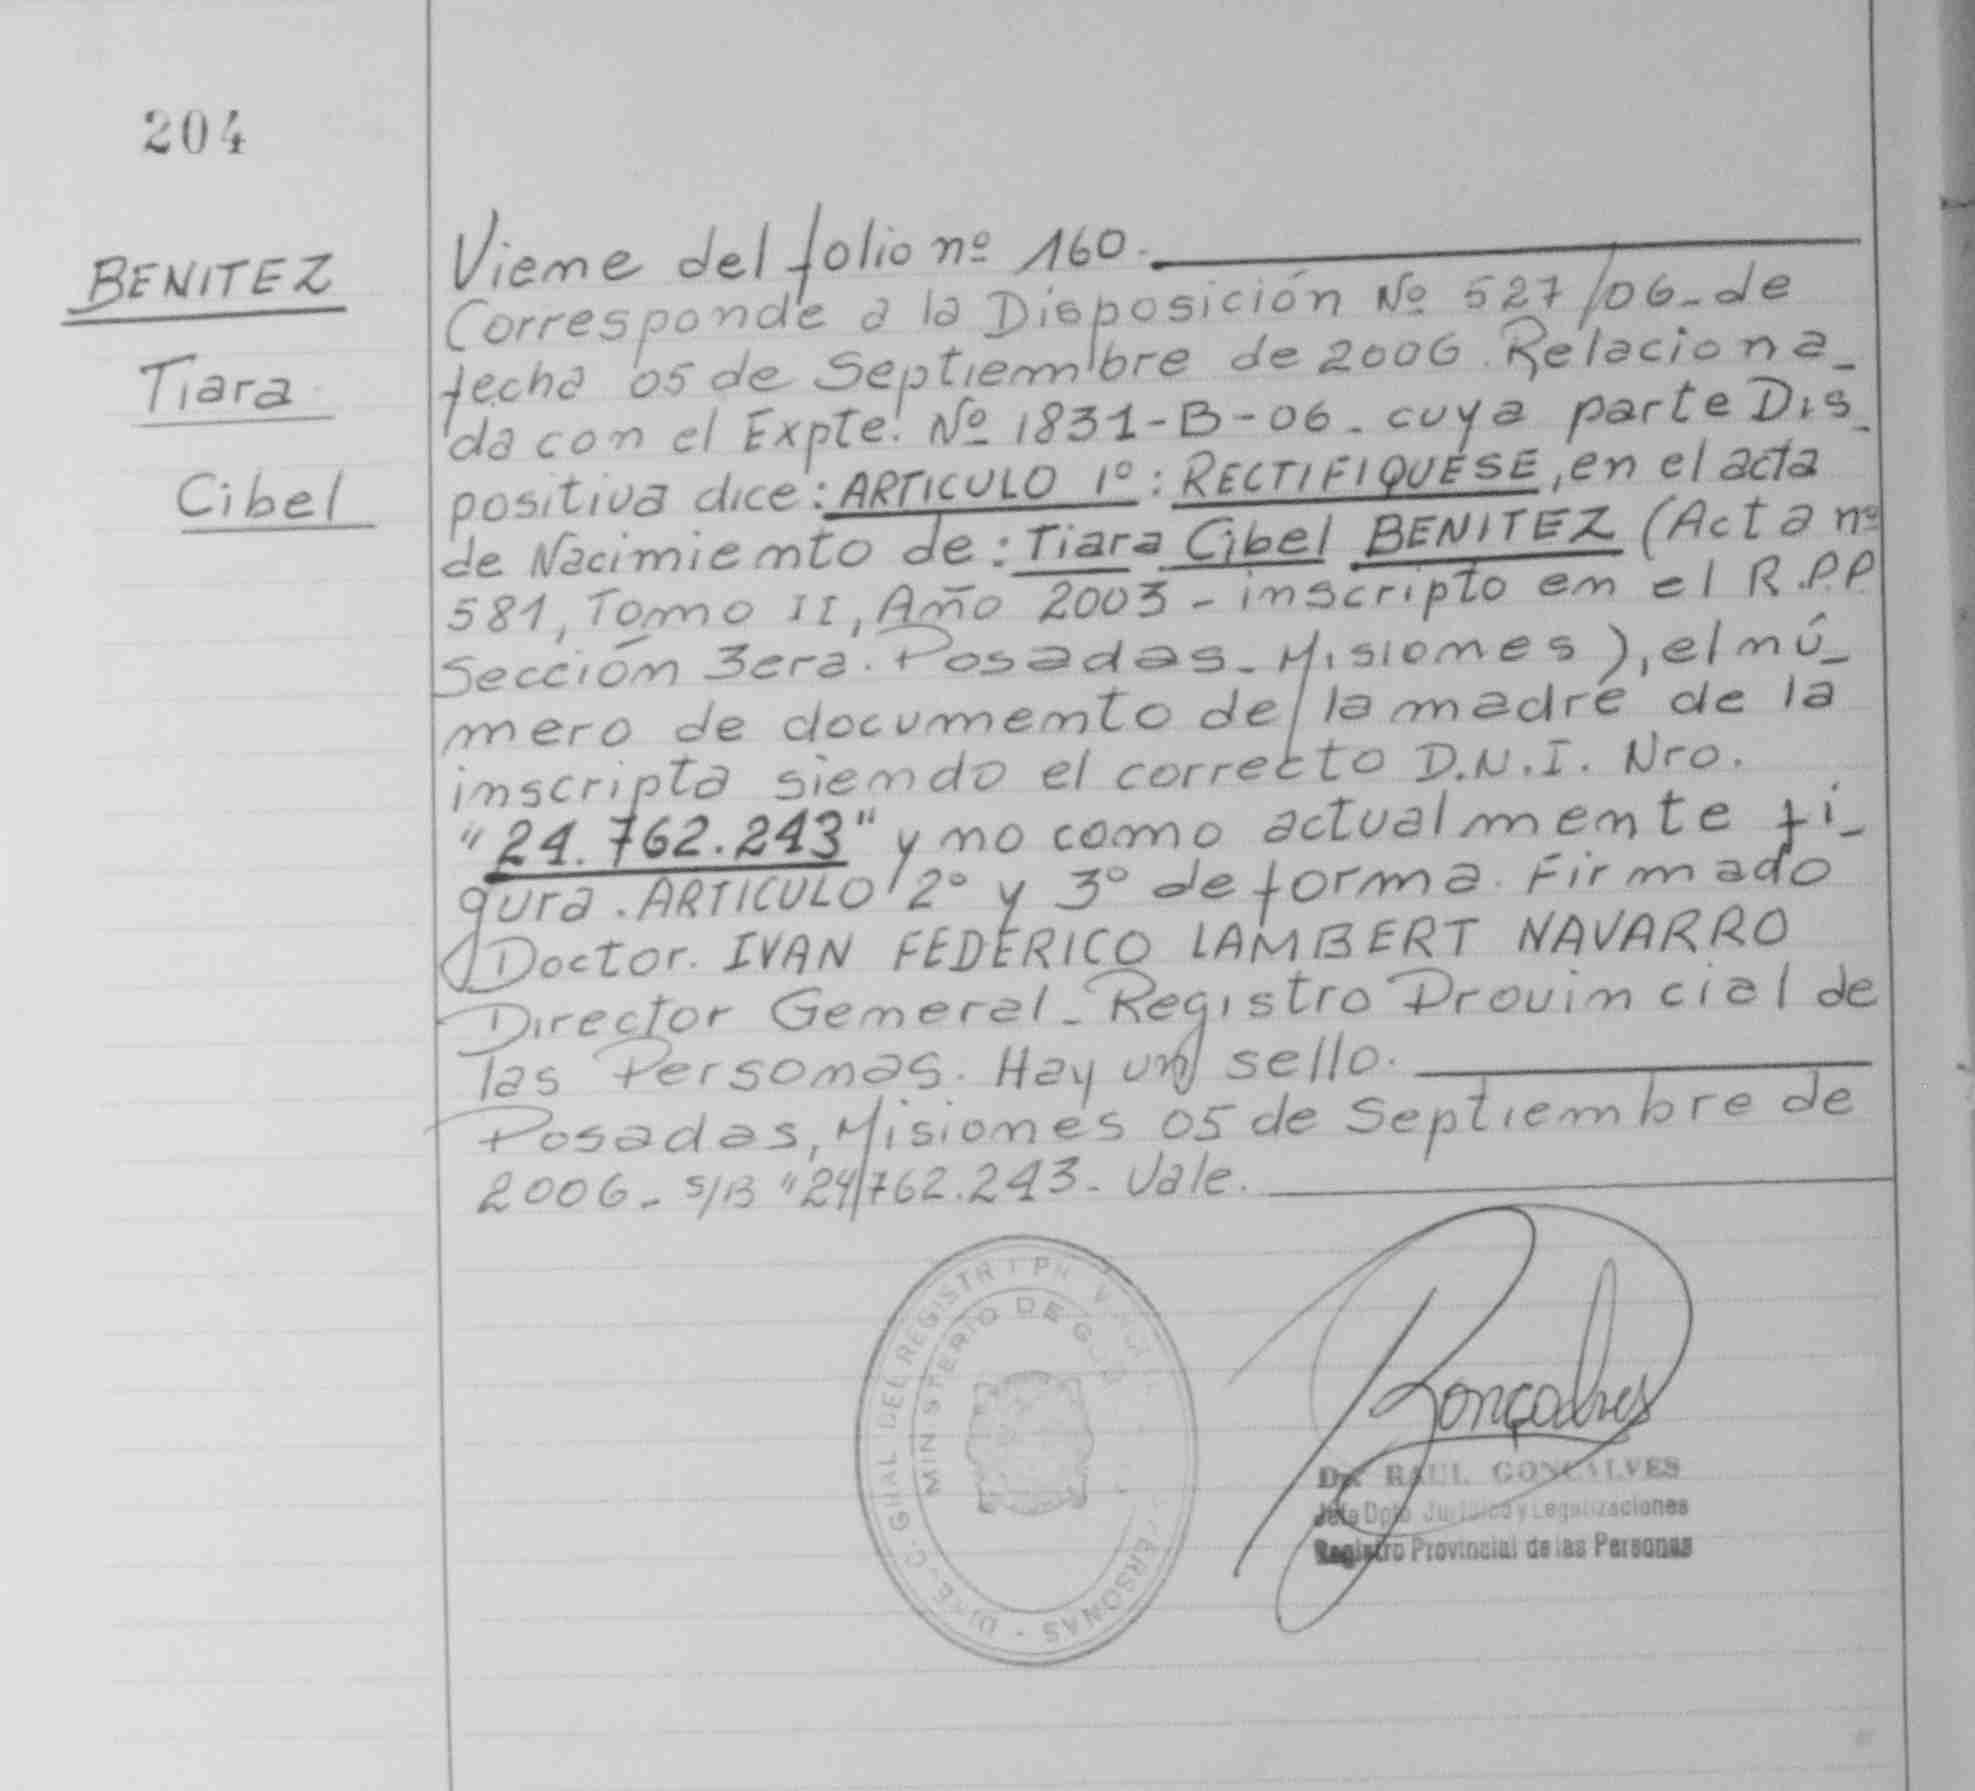 204
BENITEZ
Tiara
Cibel
Viene del folio nº 160.
Corresponde a la Disposición Nº 527/06_ de
fecha 05 de Septiembre de 2006. Relaciona_
da con el Expte. Nº 1831-B-06_ cuya parte Dis_
positiva dice: ARTICULO 1º: RECTIFIQUESE, en el acta
de Nacimiento de: Tiara Cibel BENITEZ (Acta nº
581, Tomo II, Año 2003 - inscripto en el R.P.P.
Sección 3era. Posadas_ Misiones), el nú_
mero de documento de la madre de la
inscripta siendo el correcto D.N.I. Nro.
"24.762.243" y no como actualmente fi_
gura. ARTICULO 2º y 3º de forma. Firmado
Doctor. IVAN FEDERICO LAMBERT NAVARRO
Director General_ Registro Provincial de
las Personas. Hay un sello.
Posadas, Misiones 05 de Septiembre de
2006_ S/B "24/762.243_ Vale.
GRAL DEL REGISTR
PERSONAS
MINISTERIO DE
Gonçalves
Dr. RAUL GONCALVES
Jefe Dpto Jurídico y Legalizaciones
Registro Provincial de las Personas